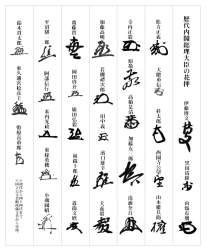 歴代内閣総理大臣の花押
伊藤博文
黒田清隆
山縣有朋
松方正義
大隈重信
桂太郎
西園寺公望
山本権兵衛
寺内正毅
原敬
高橋是清
加藤友三郎
清浦奎吾
加藤高明
若槻禮次郎
田中義一
濱口雄幸
犬養毅
斎藤實
岡田啓介
廣田弘毅
林銑十郎
近衛文麿
平沼騏一郎
阿部信行
米内光政
東條英機
小磯國昭
鈴木貫太郎
東久邇宮稔彦王
幣原喜重郎